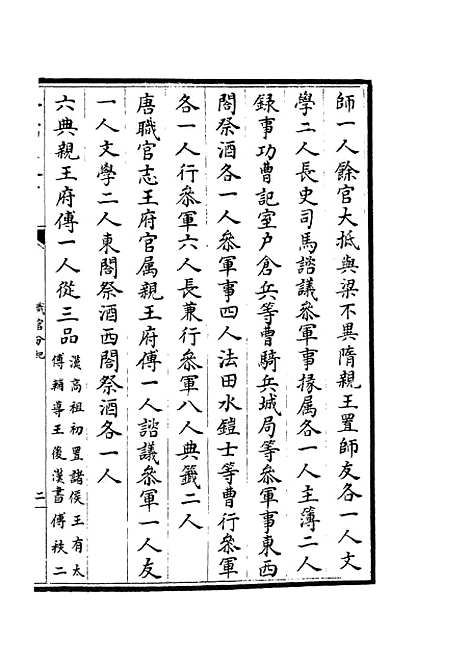 師一人餘官大抵與梁不異隋親王置師友各一人文
學二人長史司馬諮議叅軍事掾属各一人主簿二人
録事功曹記室户倉兵等曹騎兵城局等叅軍事東西
閤祭酒各一人叅軍事四人法田水鎧士等曹行叅軍
各一人行叅軍六人長兼行叅軍八人典籖二人
唐職官志王府官属親王府傅一人諮議叅軍一人友
一人文學二人東閤祭酒西閤祭酒各一人
六典親王府傅一人從三品漢高祖初置諸侯王有太
傅輔導王後漢書傅秩二
職官分紀
二